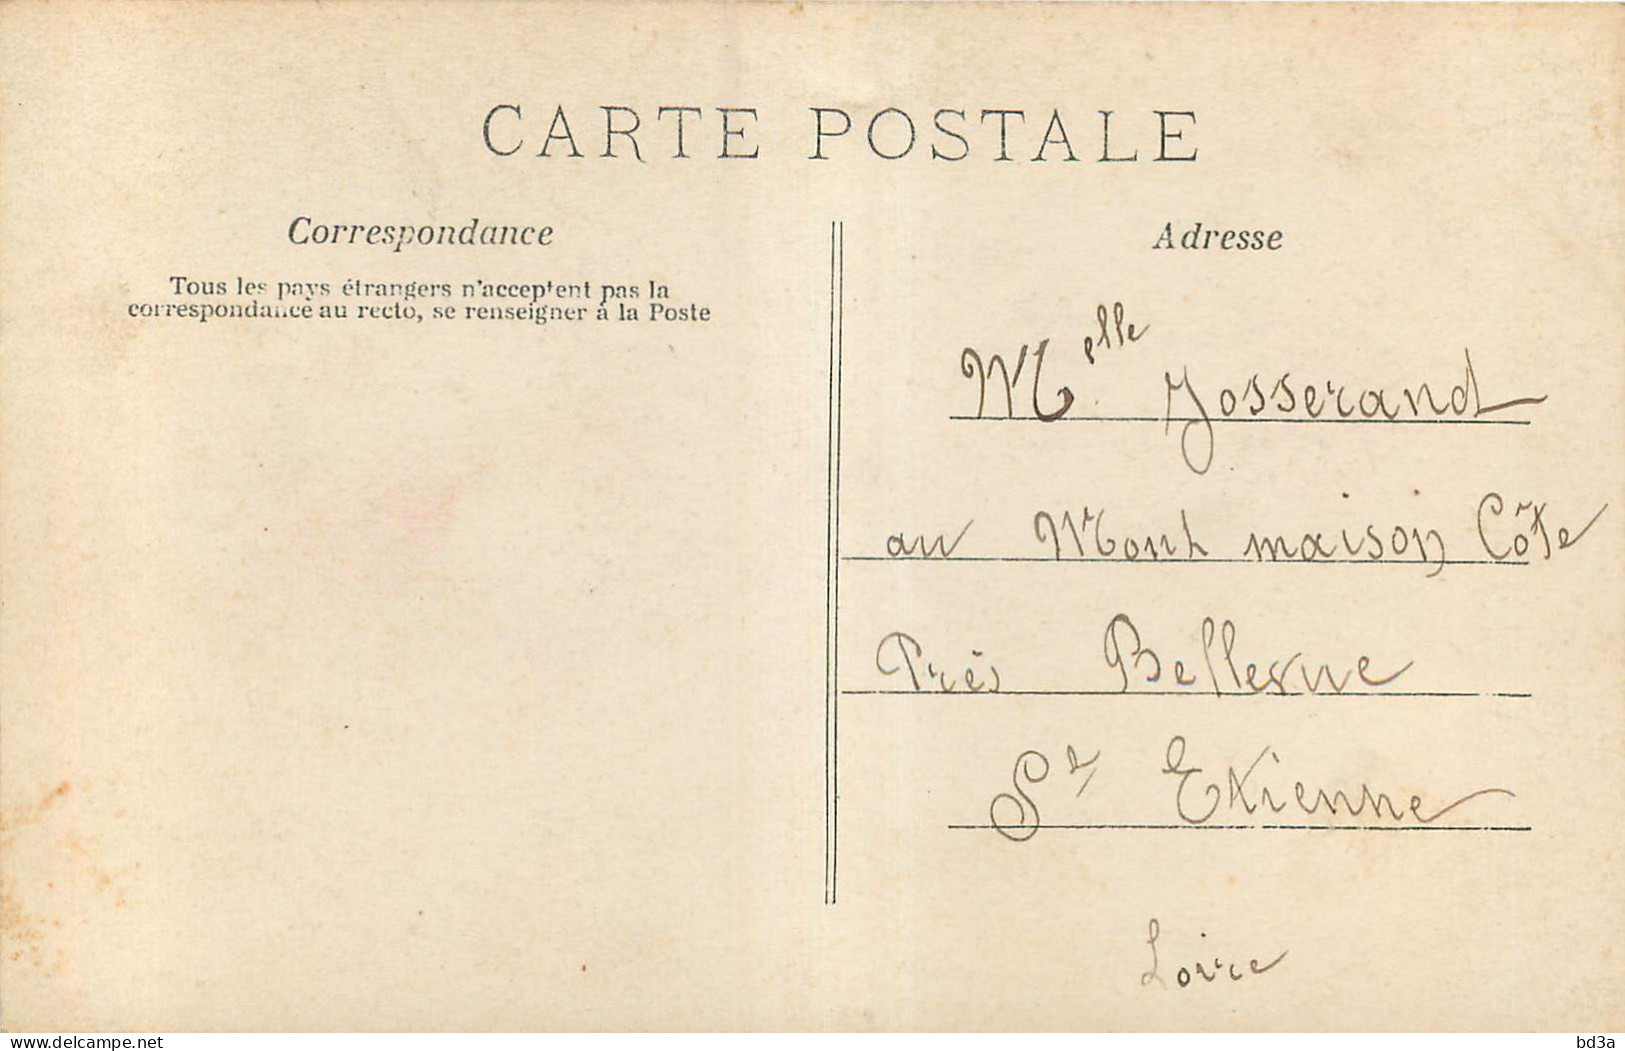 CARTE POSTALE
Correspondance
Tous les pays étrangers n'acceptent pas la
correspondance au recto, se renseigner à la Poste
Adresse
Melle Josserand
au Mont maison Côte
Près Bellevue
St Etienne
Loire
www.delcampe.net
bd3a